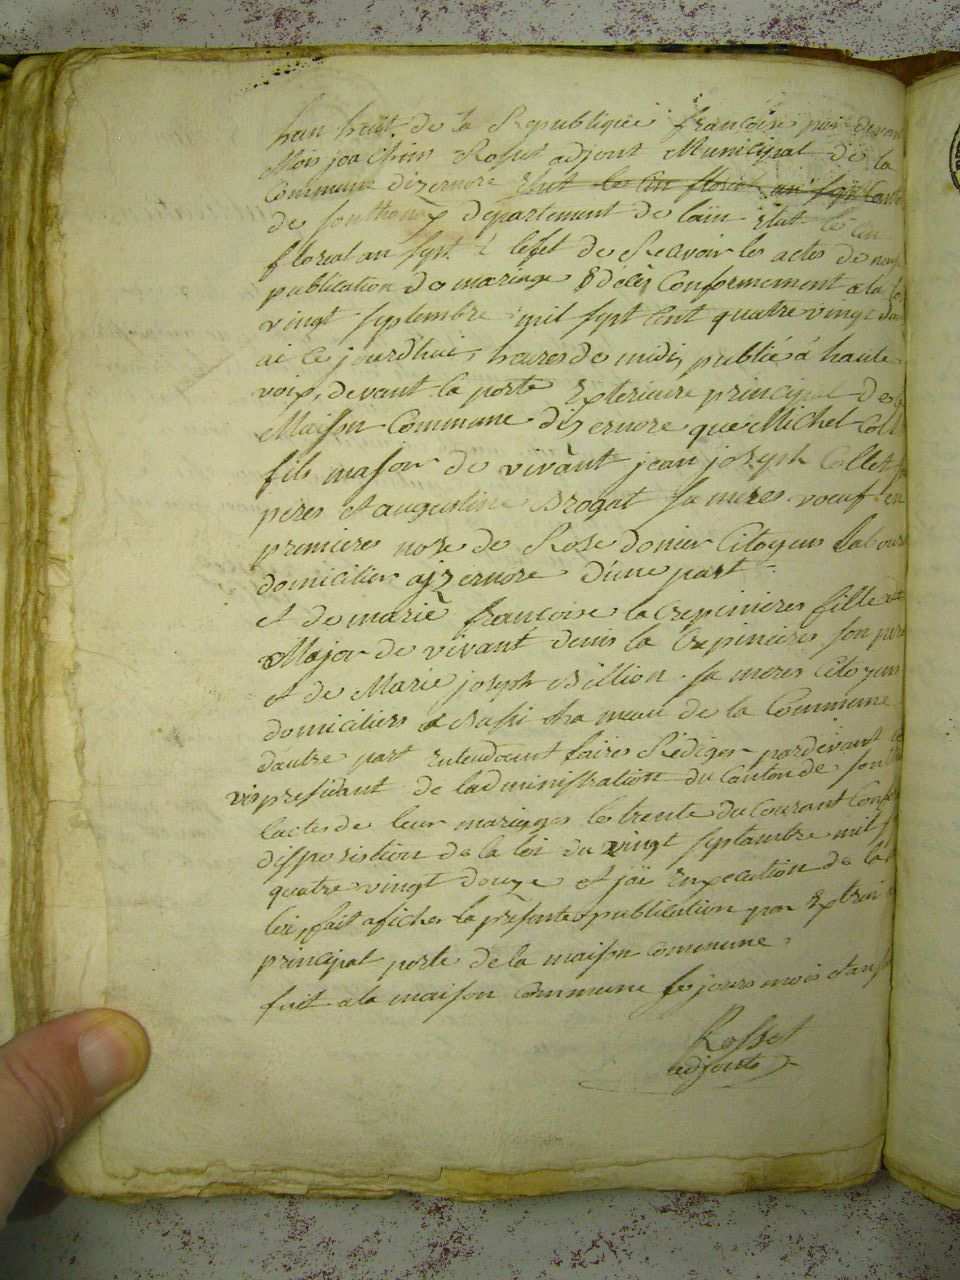 han huit de la Republiqiée francoise par devant
Mois joachim Rosset adjont Municipal de la
Commune dizernore Elut le cin floreal an sept
de sonthonax departement de lain Elut le cin
floreal an sept a leffet de Recevoir les actes de
publication de mariage & déces Conformement a la loi
vingt septembre mil sept cent quatre vingt
ai ce jourdhui, heures de midi, publié á haute
voix, devant la porte Exterieure principal de
Maison Commune dizernore que Michel
fils major de vivànt jean joseph Collet
peres et augustine Brogat sa meres voeuf en
premiere nose de Rose donier Citoyens
domicilier ajzernore d'une part
et de mariè francoise la crepinieres fille
Major de vivant denis la Crepinieres son pere
et de Marie joseph Billion sa meres Citoyens
domiciliers a hameau de la Commune
dautre part Entendaint faires Rédiger pardevant
vis presidant de ladministration du Canton de
lactes de leur mariages le trente du Courant
disposistion de la loi du vingt septambre mil
quatre vingt douze et jai En execution de la
loi, fait aficher la présentes publication par Extrai
principal porte de la maison commune,
fait a la maison Commune les jours mois et an
Rosset
adjoint